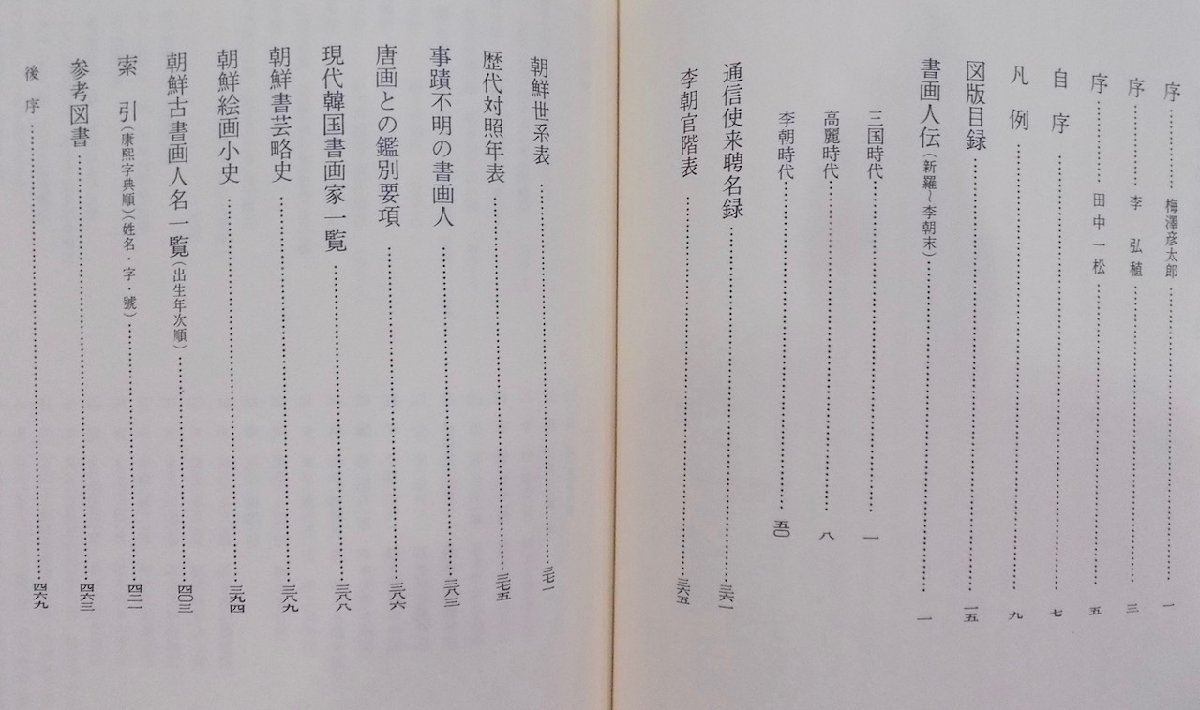 序 ‥‥ 梅澤彦太郎 ‥‥ 一
序 ‥‥ 李 弘稙 ‥‥ 三
序 ‥‥ 田中一松 ‥‥ 五
自序 ‥‥ 七
凡例 ‥‥ 九
図版目録 ‥‥ 一五
書画人伝(新羅~李朝末) ‥‥ 一
三国時代 ‥‥ 一
高麗時代 ‥‥ 八
李朝時代 ‥‥ 五〇
通信使来聘名録 ‥‥ 三六一
李朝官階表 ‥‥ 三六五
朝鮮世系表 ‥‥ 三七一
歴代対照年表 ‥‥ 三七五
事蹟不明の書画人 ‥‥ 三八三
唐画との鑑別要項 ‥‥ 三八六
現代韓国書画家一覧 ‥‥ 三八八
朝鮮書芸略史 ‥‥ 三八九
朝鮮絵画小史 ‥‥ 三九四
朝鮮古書画人名一覧(出生年次順) ‥‥ 四〇三
索引(康熙字典順)(姓名・字・號) ‥‥ 四二一
参考図書 ‥‥ 四六三
後序 ‥‥ 四六九